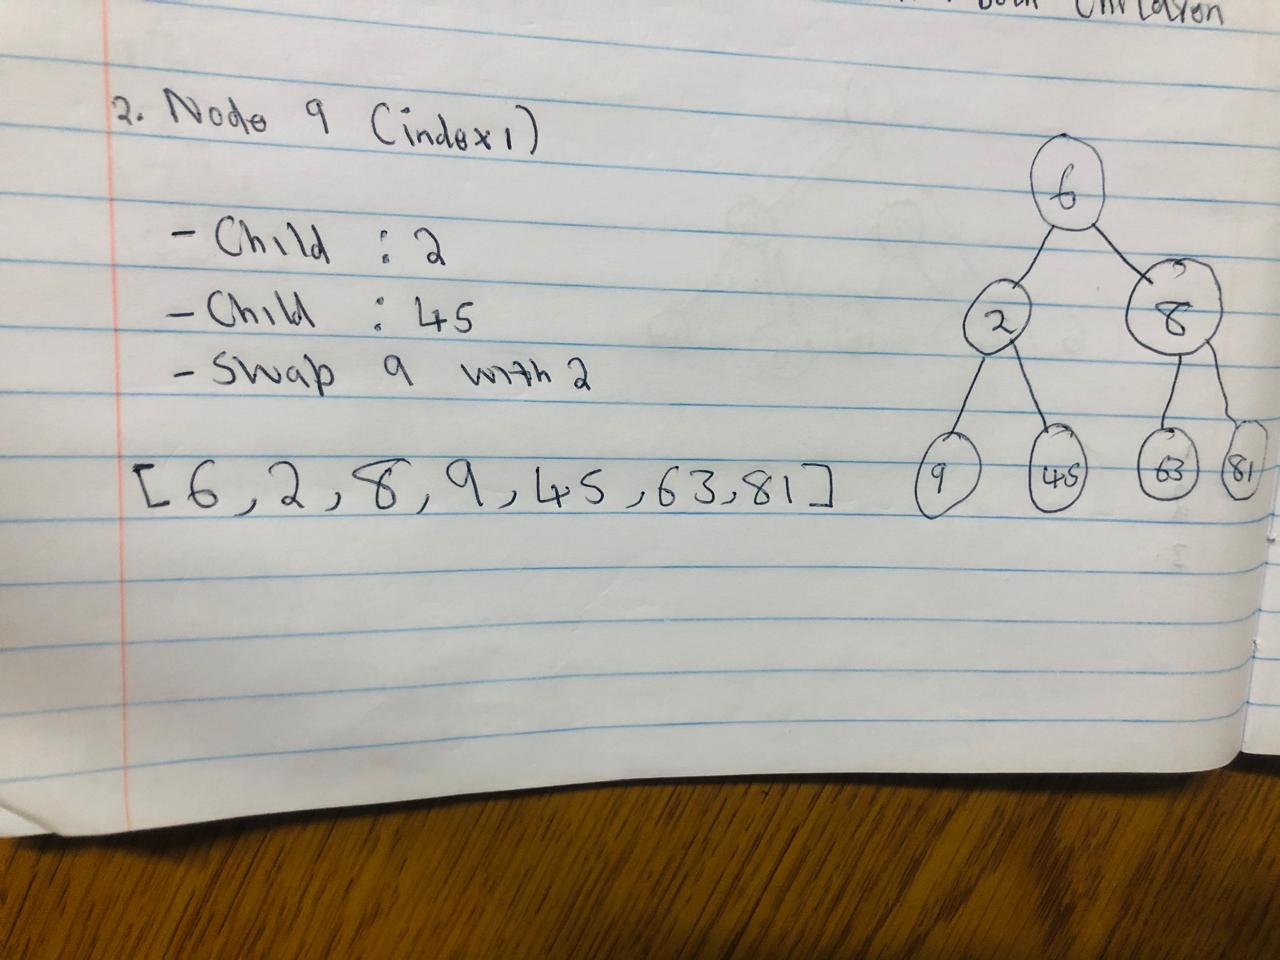 Children
2. Node 9 (index 1)
- Child : 2
- Child : 45
- Swap 9 with 2
[6, 2, 8, 9, 45, 63, 81]
6
2 8
9 45 63 81